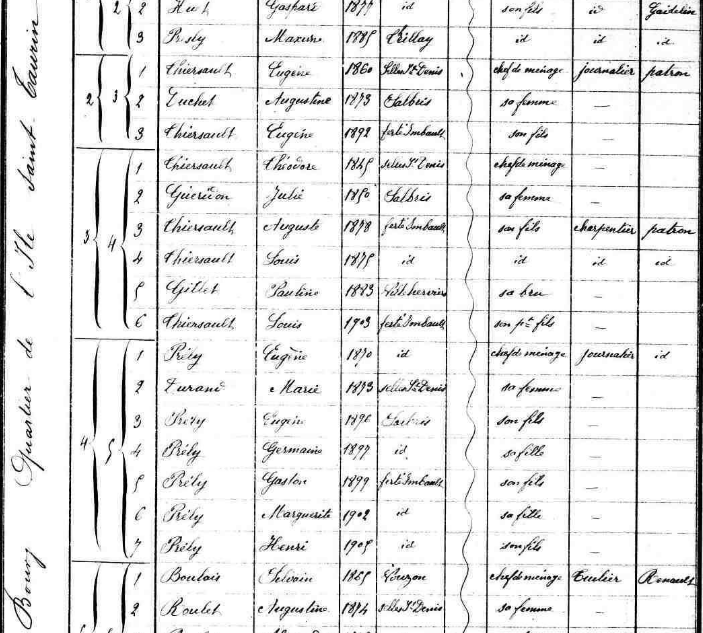 Bourg Quartier de l'Ile Saint Taurin
2 2 Huet Gaspard 1877 id son fils id
3 Maxime 1885 id id id
2 3 1 Thiersault Eugène 1860 Selles St Denis chef de ménage journalier patron
2 Tuchet Augustine 1873 Salbris sa femme —
3 Thiersault Eugène 1892 ferté Imbault son fils —
3 4 1 Thiersault Théodore 1845 selles St Denis chef de ménage
2 Julie 1850 Salbris sa femme —
3 Thiersault Auguste 1878 ferté Imbault son fils charpentier patron
4 Thiersault Louis 1875 id id id id
5 Gillet Pauline 1883 sa bru —
6 Thiersault Louis 1903 ferté Imbault son pt fils —
4 5 1 Prély Eugène 1870 id chef de ménage journalier id
2 Durand Marie 1873 selles St Denis sa femme —
3 Prély Eugène 1896 Salbris son fils —
4 Prély Germaine 1897 id sa fille —
5 Prély Gaston 1899 ferté Imbault son fils —
6 Prély Marguerite 1902 id sa fille —
7 Prély Henri 1905 id son fils —
1 Boulais Silvain 1865 Vouzon chef de ménage Tuilier Renault
2 Roulet Augustine 1874 selles St Denis sa femme —